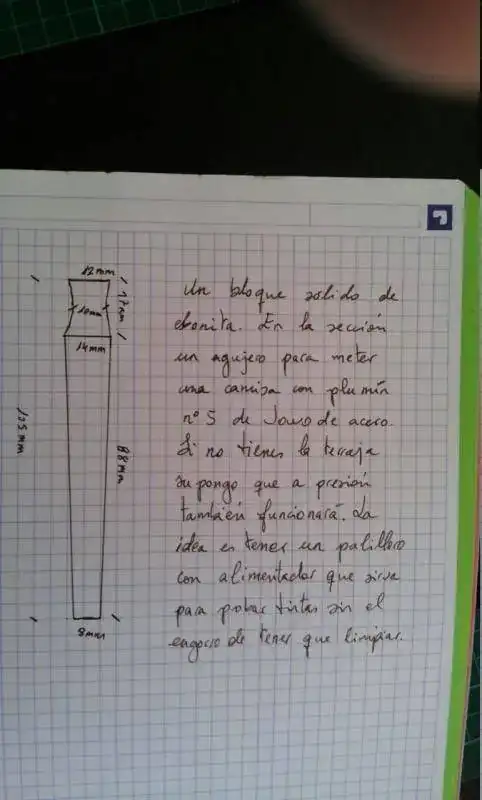 12mm
17mm
10mm
14mm
88mm
105mm
9mm
Un bloque solido de
ebonita. En la sección
un agujero para meter
una camisa con plumín
nº 5 de Jowo de acero.
Si no tienes la terraja
supongo que a presión
también funcionará. La
idea es tener un palillero
con alimentador que sirva
para probar tintas sin el
engorro de tener que limpiar.